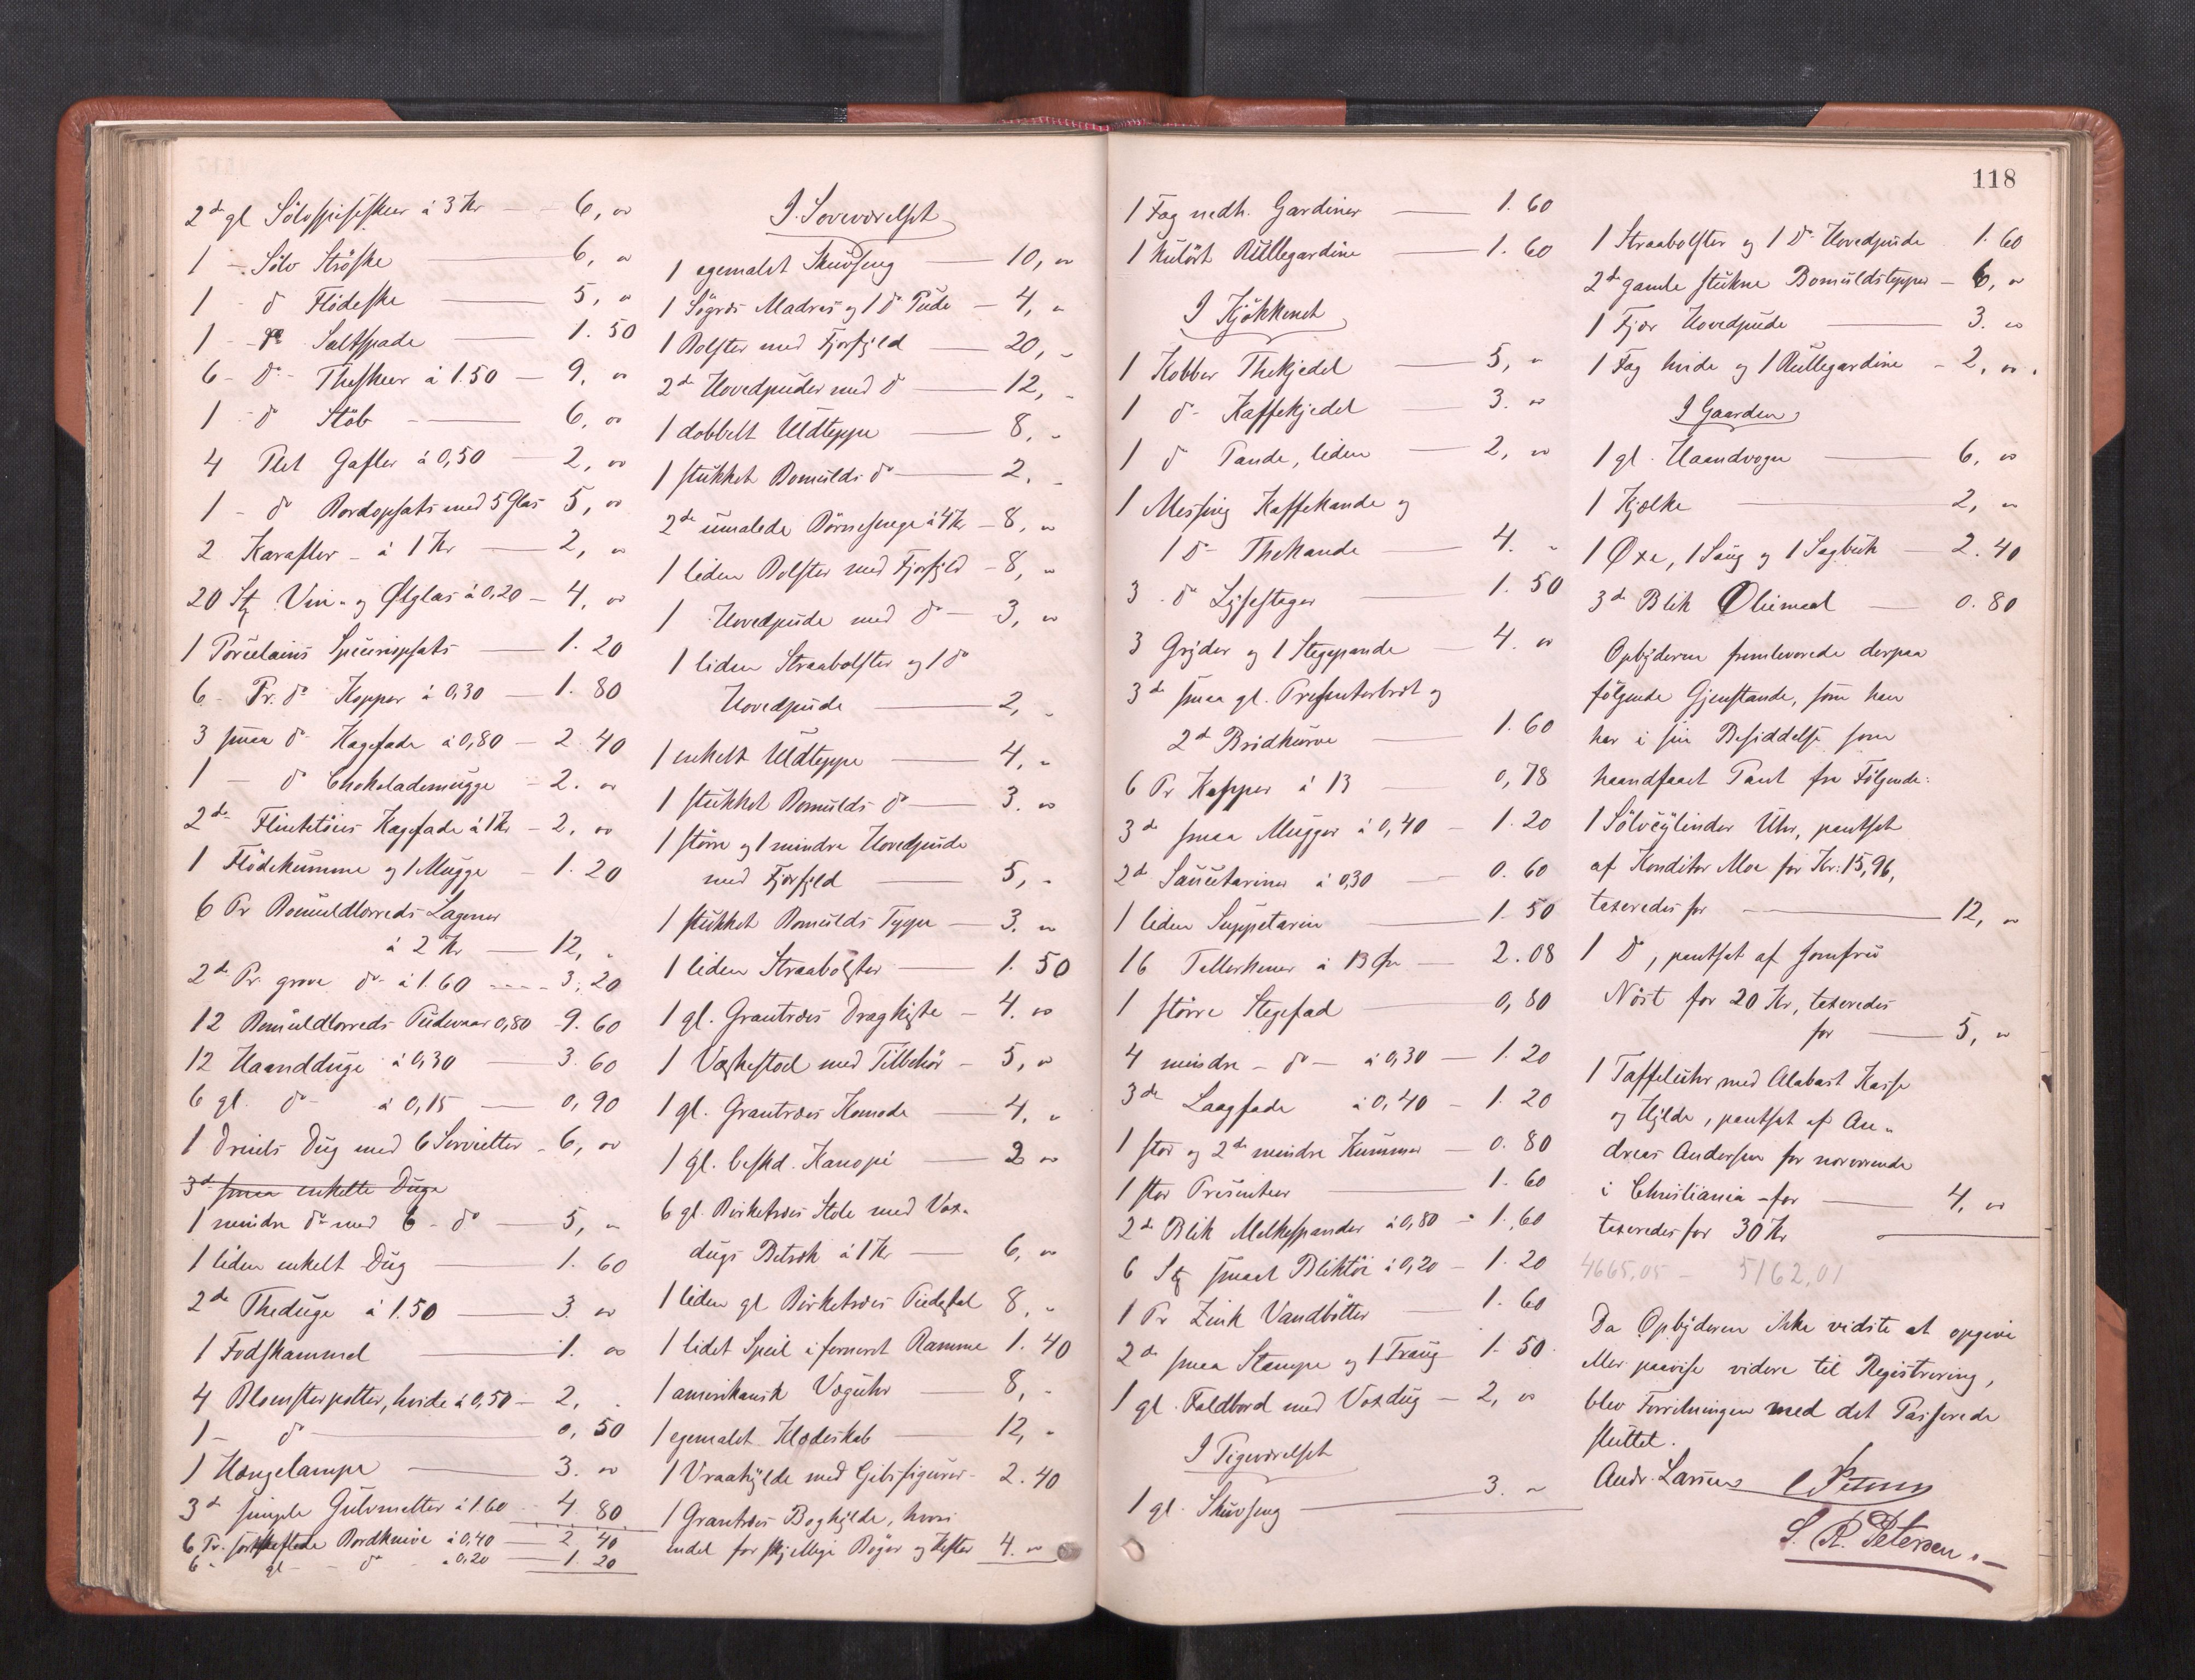 2de gl Sölvspiseskeer á 3 Kr — 6, "
1 - Sölv Ströske — 6, "
1 - do Flödeske — 5, "
1 - do Saltspade — 1. 50
6 - do - Theskeer á 1.50 — 9, "
1 - do Stöb — 6, "
4 Plet Gafler á 0,50 — 2, "
1 - do Bordopsats med 5 Glas 5, "
2 Karafler - á 1 Kr — 2, "
20 Stk Vin- og Ølglas á 0,20 — 4, "
1 Porcelains Spiicriopsats — 1. 20
6 - Pr. do Kopper á 0,30 — 1. 80
3 smaa do Kagefade á 0,80 — 2. 40
1 - do Chokolademugge — 2. "
2de Flintetöies Kagefade á 1 Kr — 2, "
1 Flödekumme og 1 Mugge — 1. 20
6 Pr Bomuldlerreds Lagener
á 2 Kr — 12, "
2de Pr. grove do á 1.60 — 3, 20
12 Bomuldlerreds Pudevaar 0,80 - 9. 60
12 Haandduge á 0,30 — 3. 60
6 gl. do á 0,15 — 0, 90
1 Dreiels Dug med 6 Servietter - 6, "
3de smaa enkelte Duge
1 mindre do med 6 - do — 5, "
1 liden enkelt Dug — 1. 60
2de Theduge á 1.50 — 3 "
1 Fodskammel — 1. "
4 Blomsterpotter, hvide á 0,50 — 2, "
1 - do — 0, 50
1 Hængelampe — 3. "
3de simple Gulvmatter á 1.60 — 4. 80
6 Pr. sortskeftede Bordknive á 0,40 — 2 40
6 - gl - do á 0,20 — 1. 20
I Soveværelset
1 egemalet Skuvseng — 10, "
1 Sögræs Madras og 1 do Pude — 4, "
1 Bolster med Fjærfyld — 20, "
2de Hovedpuder med do — 12, "
1 dobbelt Uldteppe — 8, "
1 stukket Bomulds do — 2, "
2de umalede Börnesenge á 4 Kr — 8, "
1 liden Bolster med Fjærfyld — 8, "
1 Hovedpude med do — 3, "
1 liden Straabolster og 1 do
Hovedpude — 2, "
1 enkelt Uldteppe — 4, "
1 stukket Bomulds do — 3. "
1 större og 1 mindre Hovedpude
med Fjærfyld — 5, "
1 stukket Bomulds Teppe — 3. "
1 liden Straabolster — 1. 50
1 gl. Grantræs Dragkiste — 4. "
1 Vaskestol med Tilbehör — 5, "
1 gl. Grantræs Komode — 4, "
1 gl. beskd. Kanape — 2 "
6 gl. Birketræs Stole med Vox-
dugs Betræk á 1 Kr — 6, "
1 liden gl Birketræs Piedestal 8, "
1 lidet Speil i ferneret Ramme 1. 40
1 amerikansk Væguhr — 8, "
1 egemalet Klædeskab — 12, "
1 Vraahylde med Gibsfigurer - 2. 40
1 Grantræs Boghylde, hvori
endel forskjellige Böger og Hefter 4. "
118
1 Fag nedh. Gardiner — 1. 60
1 kulört Rullegardine — 1. 60
I Kjökkenet
1 Kobber Thekjedel — 5, "
1 do - Kaffekjedel — 3. "
1 do Pande, liden — 2, "
1 Messing Kaffekande og
1 do - Thekande — 4. "
3 - do Lysestager — 1. 50
3 Gryder og 1 Stegepande — 4. "
3de smaa gl. Presenterbret og
2de Brödkurve — 1. 60
6 Pr Kopper á 13 — 0, 78
3de smaa Mugger á 0,40 — 1. 20
2de Saucetariner á 0,30 — 0. 60
1 liden Suppetarin — 1. 50
16 Tallerkener á 13 Öre — 2. 08
1 större Stegefad — 0, 80
4 mindre - do - á 0,30 — 1. 20
3de Laagfade á 0,40 — 1. 20
1 stor og 2de mindre Kummer — 0. 80
1 stor Presenteer — 1. 60
2de Blik Melkespander á 0,80 — 1, 60
6 Stk smaat Bliktöi á 0,20 — 1. 20
1 Pr Zink Vandbötter — 1. 60
2de smaa Stampe og 1 Traug 1. 50
1 gl. Faldbord med Voxdug — 2, "
I Pigeværelset
1 gl. Skuvseng — 3. "
1 Straabolster og 1 do Hovedpude 1. 60
2de gamle stukne Bomuldstepper — 6, "
1 Fjær Hovedpude — 3. "
1 Fag hvide og 1 Rullegardine — 2, "
I Gaarden
1 gl. Haandvogn — 6, "
1 Kjelke — 2, "
1 Øxe, 1 Saug og 1 Sagbuk — 2. 40
3de Blik Oliemaal — 0. 80
Opbyderen fremleverede derpaa
fölgende Gjenstande, som han
har i sin Besiddelse som
haandfaaet Pant fra Fölgende:
1 Sölvcylinder Uhr, pantsat
af Konditor Moe for Kr: 15,96,
taxeredes for — 12, "
1 do, pantsat af Jomfru
Nöst for 20 Kr, taxeredes
for — 5, "
1 Taffeluhr med Alabast Kasse
og Hylde, pantsat af An-
dreas Andersen for nærværende
i Christiania - for — 4, "
taxeredes for 30 Kr
4665,05 - 5162,01
Da Opbyderen ikke vidste at opgive
eller paavise videre til Registrering,
blev Forretningen med det Passerede
sluttet.
Andr. Larsen
S. R. Petersen.